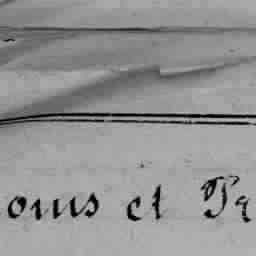 oms et Pr